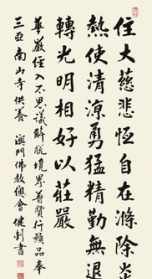 住大慈悲恆自在滌除炎
熱使清涼勇猛精勤無退
轉光明相好以莊嚴
華嚴經入不思議解脫境界普賢行願品奉
三亞南山寺供養 澳門佛教總會健釗書